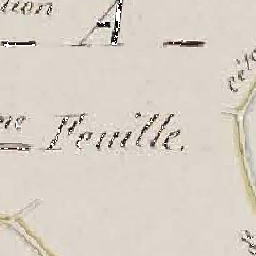 tion
A
me Feuille.